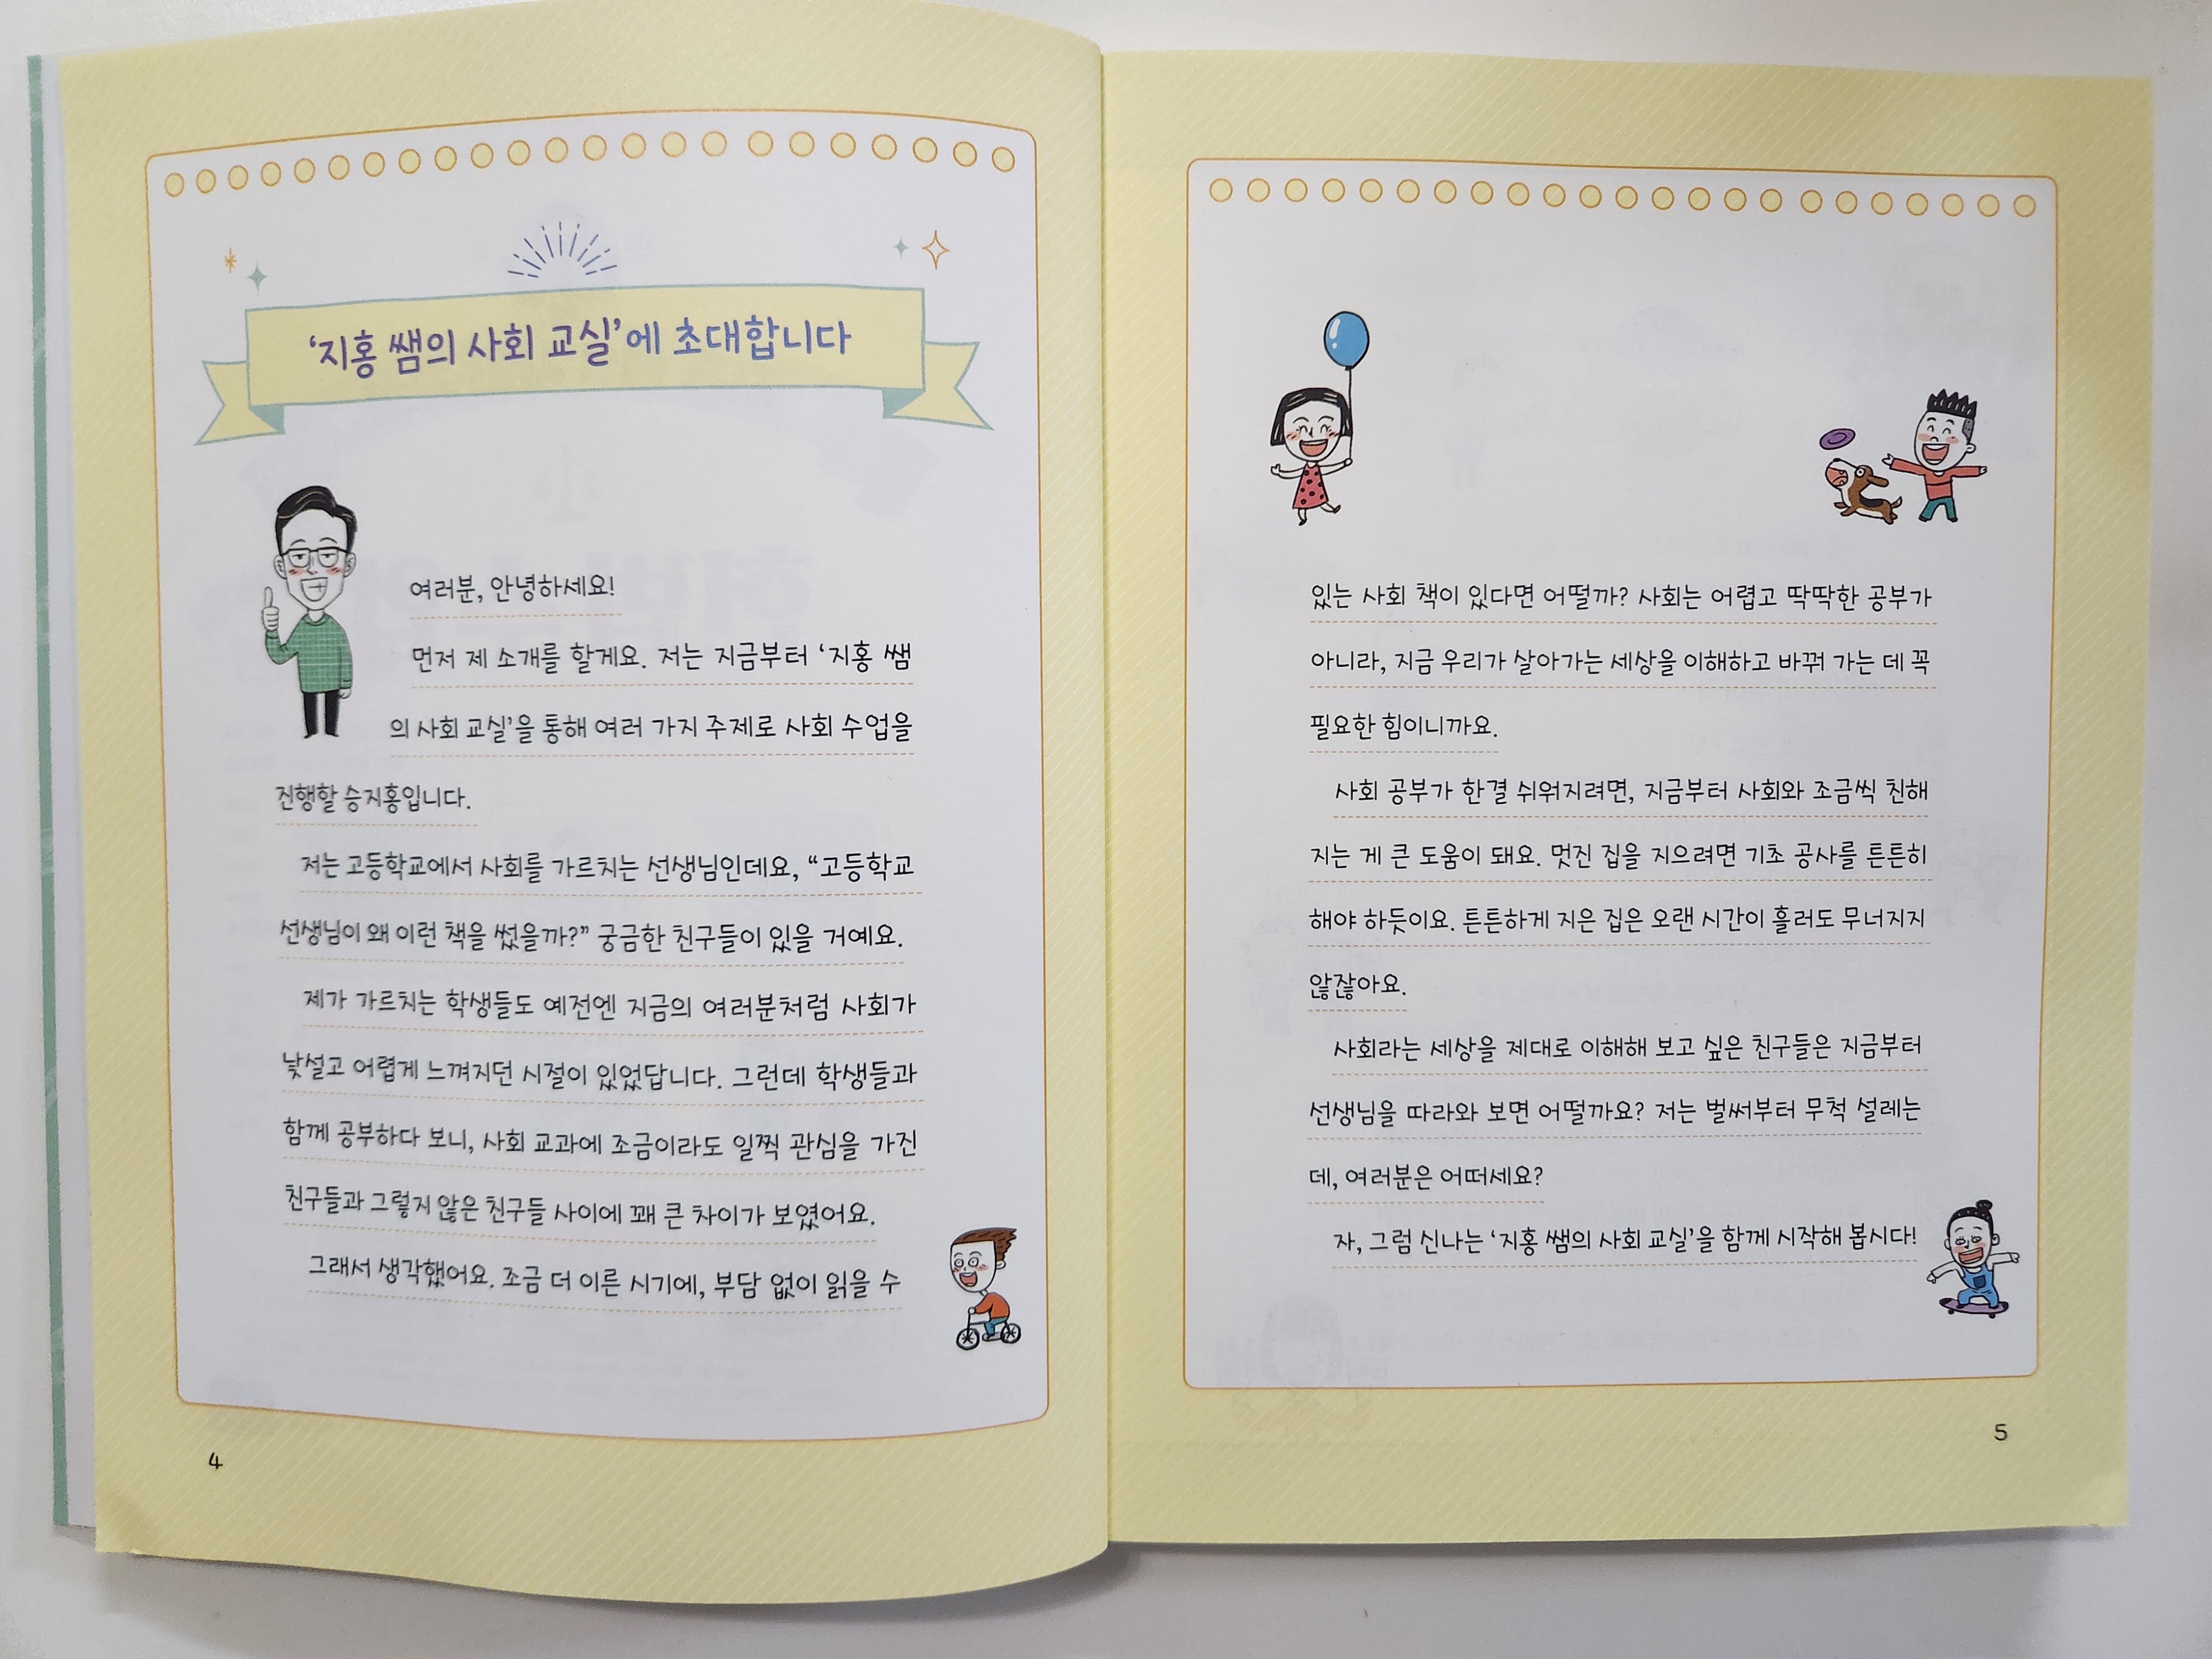 ‘지홍 쌤의 사회 교실’에 초대합니다
여러분, 안녕하세요!
먼저 제 소개를 할게요. 저는 지금부터 ‘지홍 쌤
의 사회 교실’을 통해 여러 가지 주제로 사회 수업을
진행할 승지홍입니다.
저는 고등학교에서 사회를 가르치는 선생님인데요, “고등학교
선생님이 왜 이런 책을 썼을까?” 궁금한 친구들이 있을 거예요.
제가 가르치는 학생들도 예전엔 지금의 여러분처럼 사회가
낯설고 어렵게 느껴지던 시절이 있었답니다. 그런데 학생들과
함께 공부하다 보니, 사회 교과에 조금이라도 일찍 관심을 가진
친구들과 그렇지 않은 친구들 사이에 꽤 큰 차이가 보였어요.
그래서 생각했어요. 조금 더 이른 시기에, 부담 없이 읽을 수
4
있는 사회 책이 있다면 어떨까? 사회는 어렵고 딱딱한 공부가
아니라, 지금 우리가 살아가는 세상을 이해하고 바꿔 가는 데 꼭
필요한 힘이니까요.
사회 공부가 한결 쉬워지려면, 지금부터 사회와 조금씩 친해
지는 게 큰 도움이 돼요. 멋진 집을 지으려면 기초 공사를 튼튼히
해야 하듯이요. 튼튼하게 지은 집은 오랜 시간이 흘러도 무너지지
않잖아요.
사회라는 세상을 제대로 이해해 보고 싶은 친구들은 지금부터
선생님을 따라와 보면 어떨까요? 저는 벌써부터 무척 설레는
데, 여러분은 어떠세요?
자, 그럼 신나는 ‘지홍 쌤의 사회 교실’을 함께 시작해 봅시다!
5